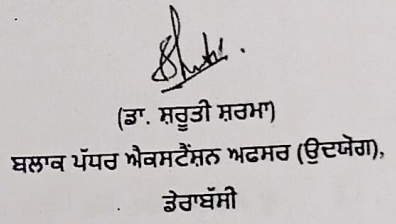 (ਡਾ. ਸ਼ਰੂਤੀ ਸ਼ਰਮਾ)
ਬਲਾਕ ਪੱਧਰ ਐਕਸਟੈਂਸ਼ਨ ਅਫਸਰ (ਉਦਯੋਗ),
ਡੇਰਾਬੱਸੀ